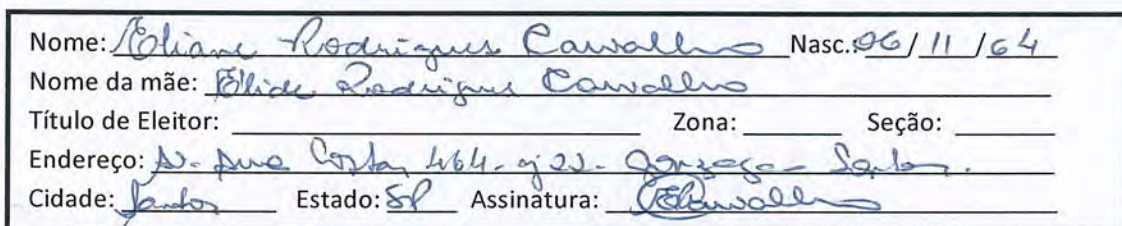 Nome: Eliane Rodrigues Carvalho Nasc.: 06/11/64
Nome da mãe: Elide Rodrigues Carvalho
Título de Eleitor: Zona: Seção:
Endereço: Av. Ana Costa, 464 - cj 22 - Gonzaga - Santos.
Cidade: Santos Estado: SP Assinatura: ECarvalho